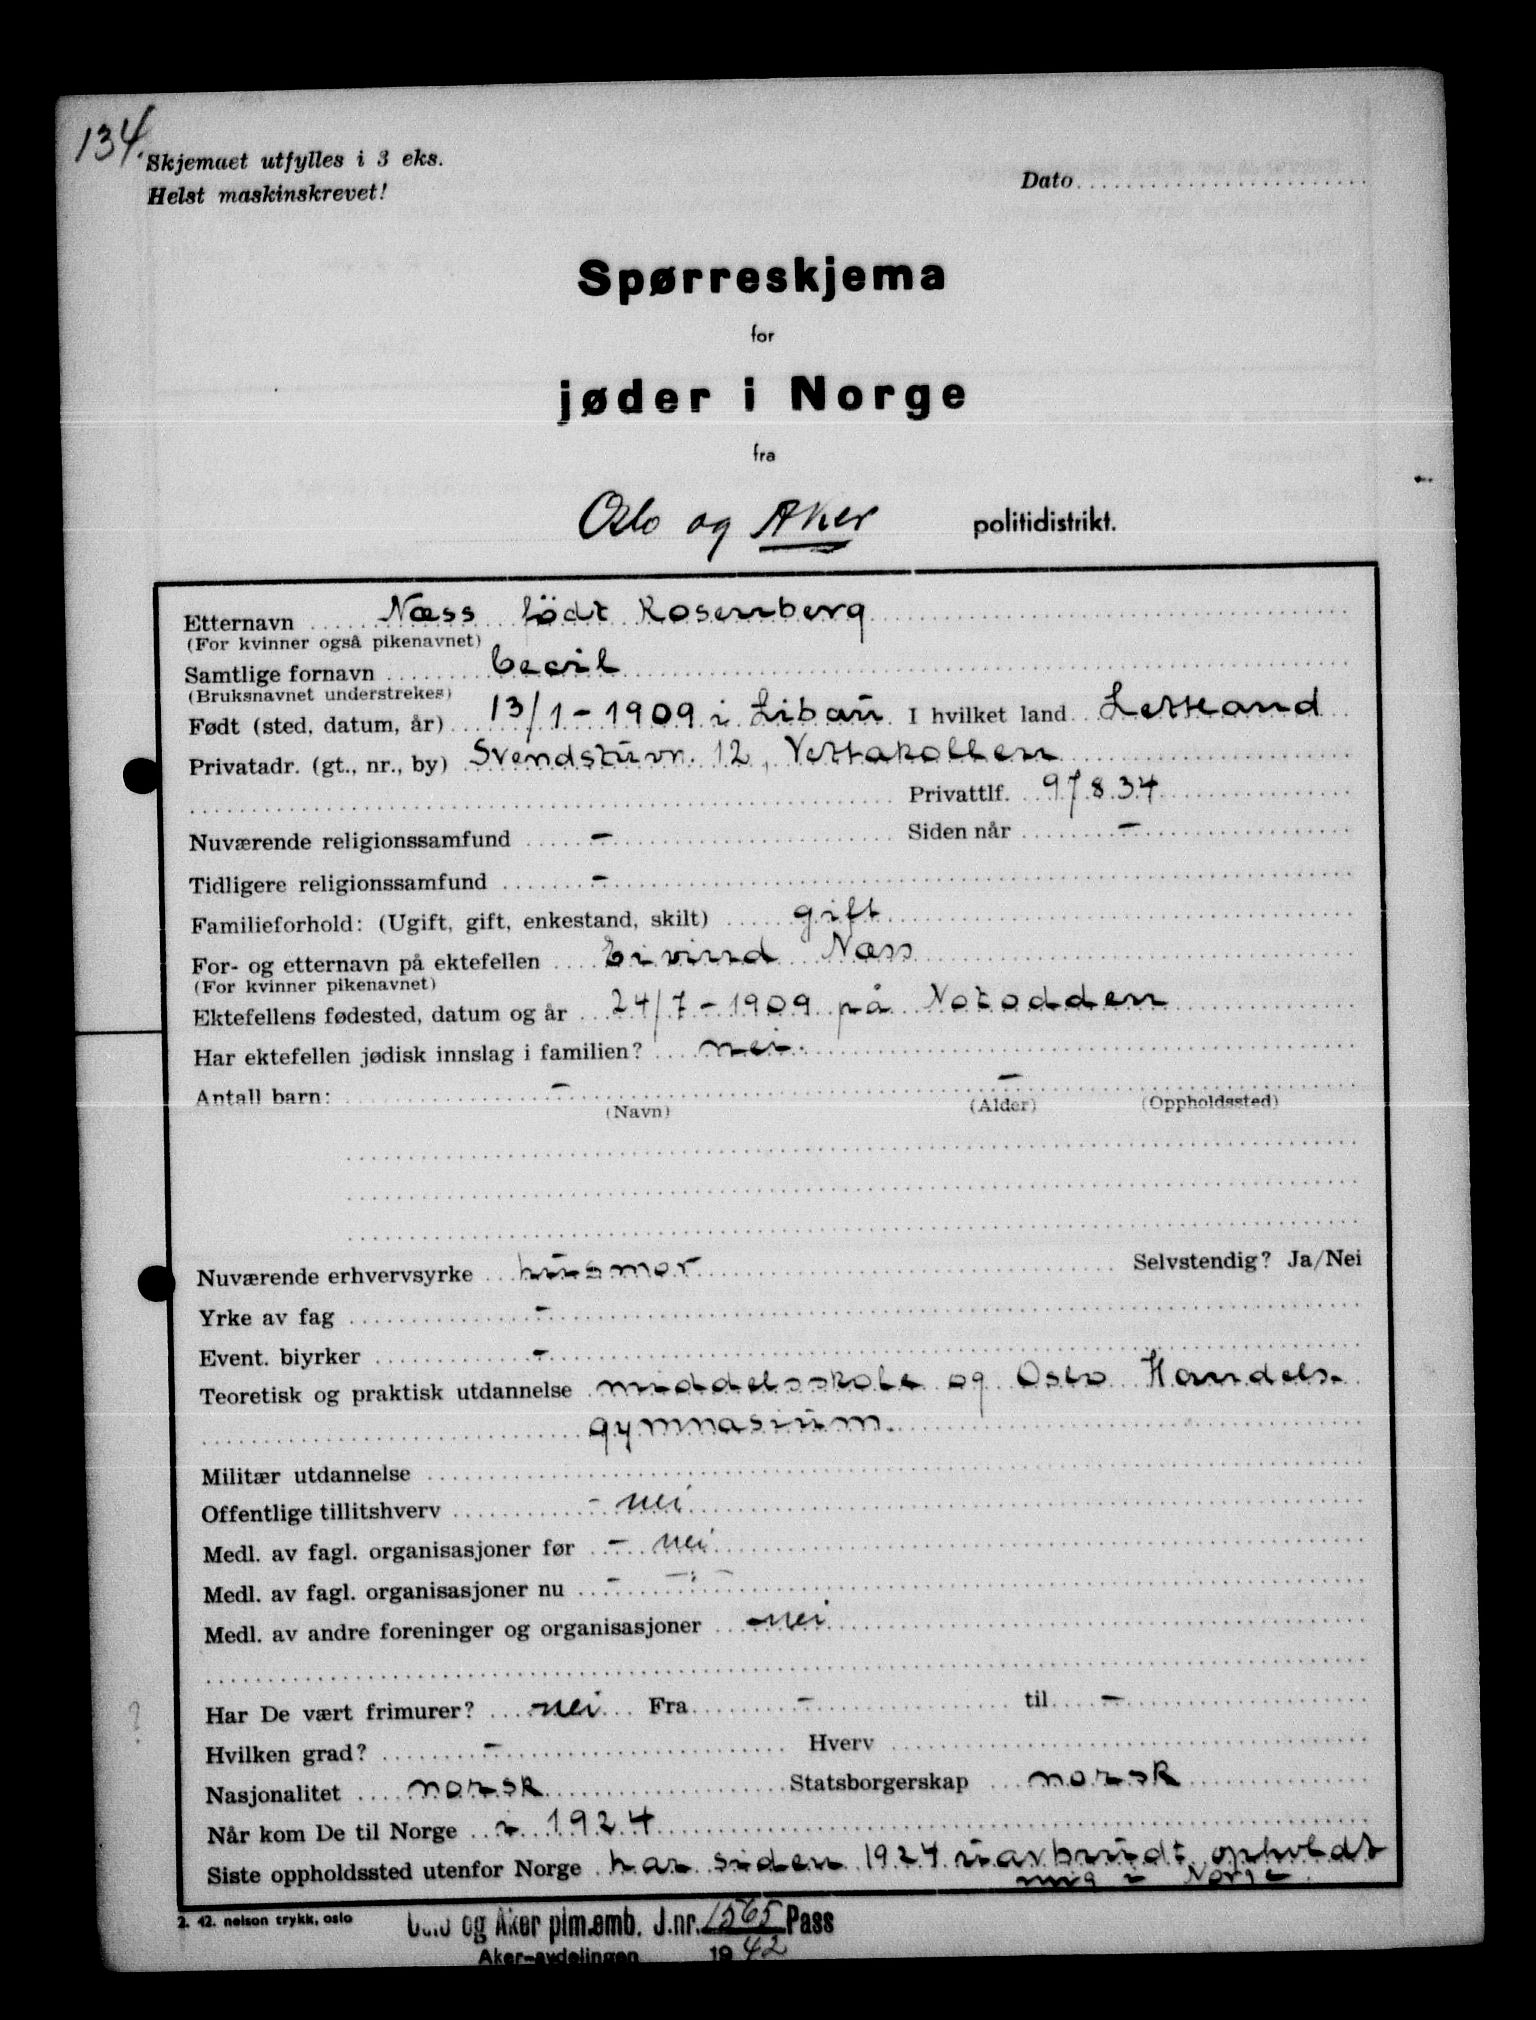 134.
Skjemaet utfylles i 3 eks.
Helst maskinskrevet!
Dato
Spørreskjema
for
jøder i Norge
fra
Oslo og Aker politidistrikt.
Etternavn Næss född Rosenberg
(For kvinner også pikenavnet)
Samtlige fornavn Cecil
(Bruksnavnet understrekes)
Født (sted, datum, år) 13/1-1909 i Libau I hvilket land Lettland
Privatadr. (gt., nr., by) Svendstuvn. 12, Vettakollen
Privattlf. 97834
Nuværende religionssamfund - Siden når -
Tidligere religionssamfund -
Familieforhold: (Ugift, gift, enkestand, skilt) gift
For- og etternavn på ektefellen Eivind Næss
(For kvinner pikenavnet)
Ektefellens fødested, datum og år 24/7-1909 på Notodden
Har ektefellen jødisk innslag i familien? nei.
Antall barn: - -
(Navn) (Alder) (Oppholdssted)
Nuværende erhvervsyrke husmor Selvstendig? Ja/Nei
Yrke av fag -
Event. biyrker -
Teoretisk og praktisk utdannelse middelsskole og Oslo Handels-
gymnasium.
Militær utdannelse
Offentlige tillitshverv - nei
Medl. av fagl. organisasjoner før - nei
Medl. av fagl. organisasjoner nu - -
Medl. av andre foreninger og organisasjoner nei
Har De vært frimurer? nei Fra - til -
Hvilken grad? - Hverv
Nasjonalitet norsk Statsborgerskap norsk
Når kom De til Norge i 1924
Siste oppholdssted utenfor Norge har siden 1924 uavbrudt opholdt
mig i Norge.
2. 42. nelson trykk, oslo
Oslo og Aker plm.emb. J.nr. 1565 Pass
Aker-avdelingen 1942